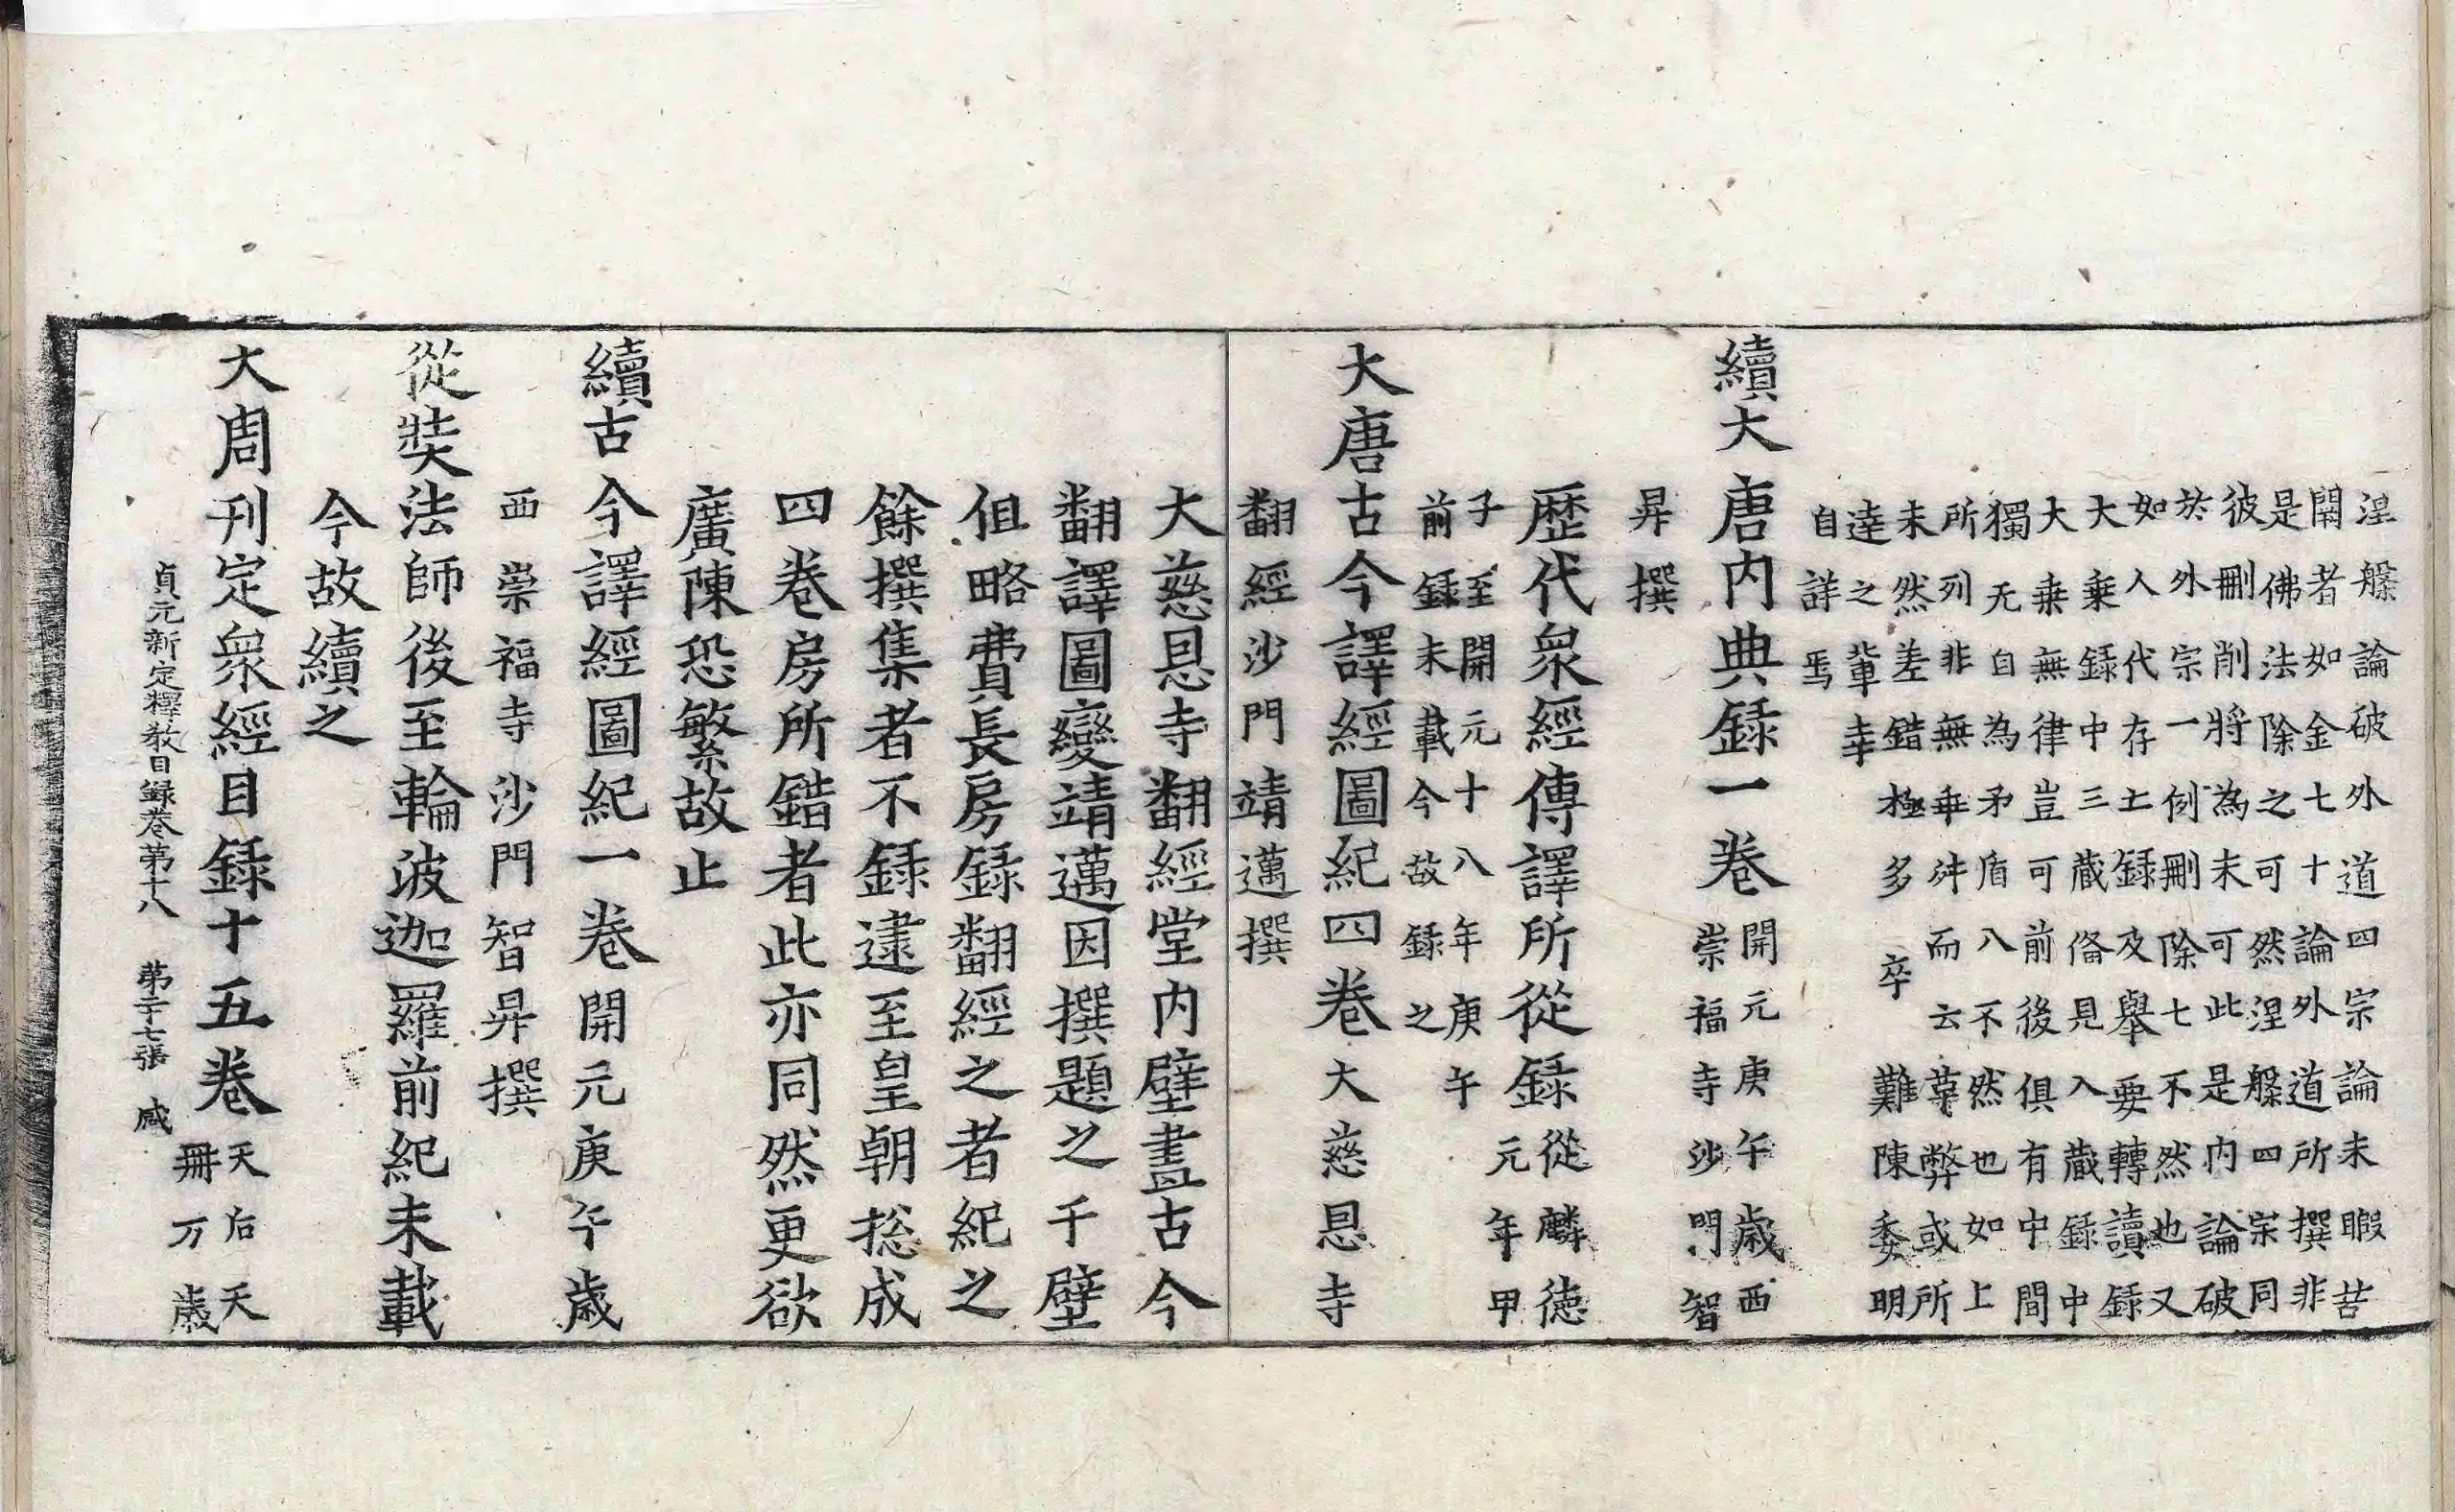 涅槃論破外道四宗論未暇苦
閑者如金七十論外道所撰非
是佛法除之可然涅槃四宗同
彼刪削將為未可此是内論破
於外宗一例刪除七不然也又
如入代存土録及舉要轉讀録
大乗録中三蔵俻見入蔵録中
大乗無律豈可前後俱有中間
獨无自為矛盾八不然也如上
所列非無乖舛而云䓁弊或所
未然差錯極多卒難陳委明
達之軰幸
自詳焉
續大唐内典録一卷開元庚午歲西
崇福寺沙門智
昇撰
歷代衆經傳譯所從録從麟徳
元年甲
子至開元十八年庚午
前録未載今故録之
大唐古今譯經圖紀四卷大慈恩寺
翻經沙門靖邁撰
大慈恩寺翻經堂内壁畫古今
翻譯圖變靖邁因撰題之于壁
但略費長房録翻經之者紀之
餘撰集者不録逮至皇朝捴成
四卷房所錯者此亦同然更欲
廣陳恐繁故止
續古今譯經圖紀一卷開元庚午歲
西崇福寺沙門智昇撰
從奘法師後至輪波迦羅前紀未載
今故續之
大周刊定衆經目録十五卷天后天
冊万歲
貞元新定釋教目録卷第十八　第二十七張　咸